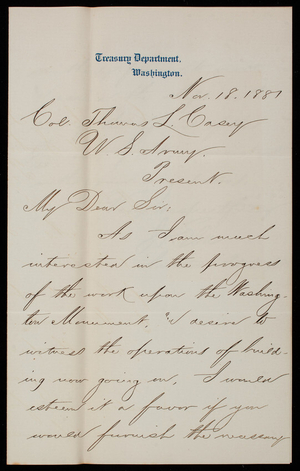 Treasury Department,
Washington.
Nov. 18. 1881
Col Thomas L Casey
U. S. Army.
Present.
My Dear Sir:
As I am much
interested in the progress
of the work upon the Washing-
ton Monument, and desire to
witness the operations of build-
ing now going on, I would
esteem it a favor if you
would furnish the necessary